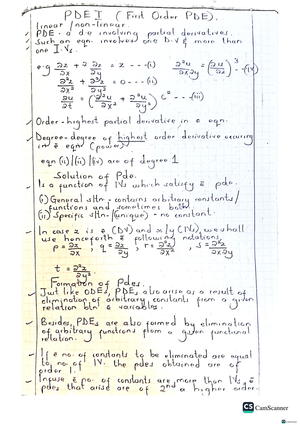 PDE I (First Order PDE).
linear / non-linear.
PDE - a d.e involving partial derivatives.
Such an eqn. involves one D.V & more than
one I.Vs.
e.g ∂z/∂x + 2 ∂z/∂y = z --- (i) ∂²u/∂x∂y = (∂u/∂x)³ -- (iv)
∂²z/∂x² + ∂²z/∂y² = 0 --- (ii)
∂u/∂t = (∂²u/∂x² + ∂²u/∂y²) c² --- (iii)
Order - highest partial derivative in e eqn.
Degree - degree of highest order derivative occuring
in e eqn (power)
eqn (i)/(ii)/(iv) are of degree 1
Solution of Pde.
Is a function of IVs which satisfy e pde.
(i) General sltn - contains arbitrary constants/
functions and sometimes both
(ii) Specific sltn - (unique) - no constant.
In case z is e (DV) and x/y (IVs) we shall
use henceforth e following notations,
p = ∂z/∂x, q = ∂z/∂y, r = ∂²z/∂x², s = ∂²z/∂x∂y
t = ∂²z/∂y²
Formation of Pdes.
Just like ODEs, PDEs also arise as a result of
elimination of arbitrary constants from a given
relation btn e variables.
Besides, PDEs are also formed by elimination
of arbitrary functions from a given functional
relation.
If e no. of constants to be eliminated are equal
to no. of IV. the pdes obtained are of
order 1.
Incase e no. of constants are more than IVs e
pdes that arise are of 2nd a higher order.
CS CamScanner